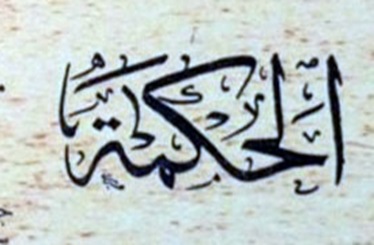 الحكمة